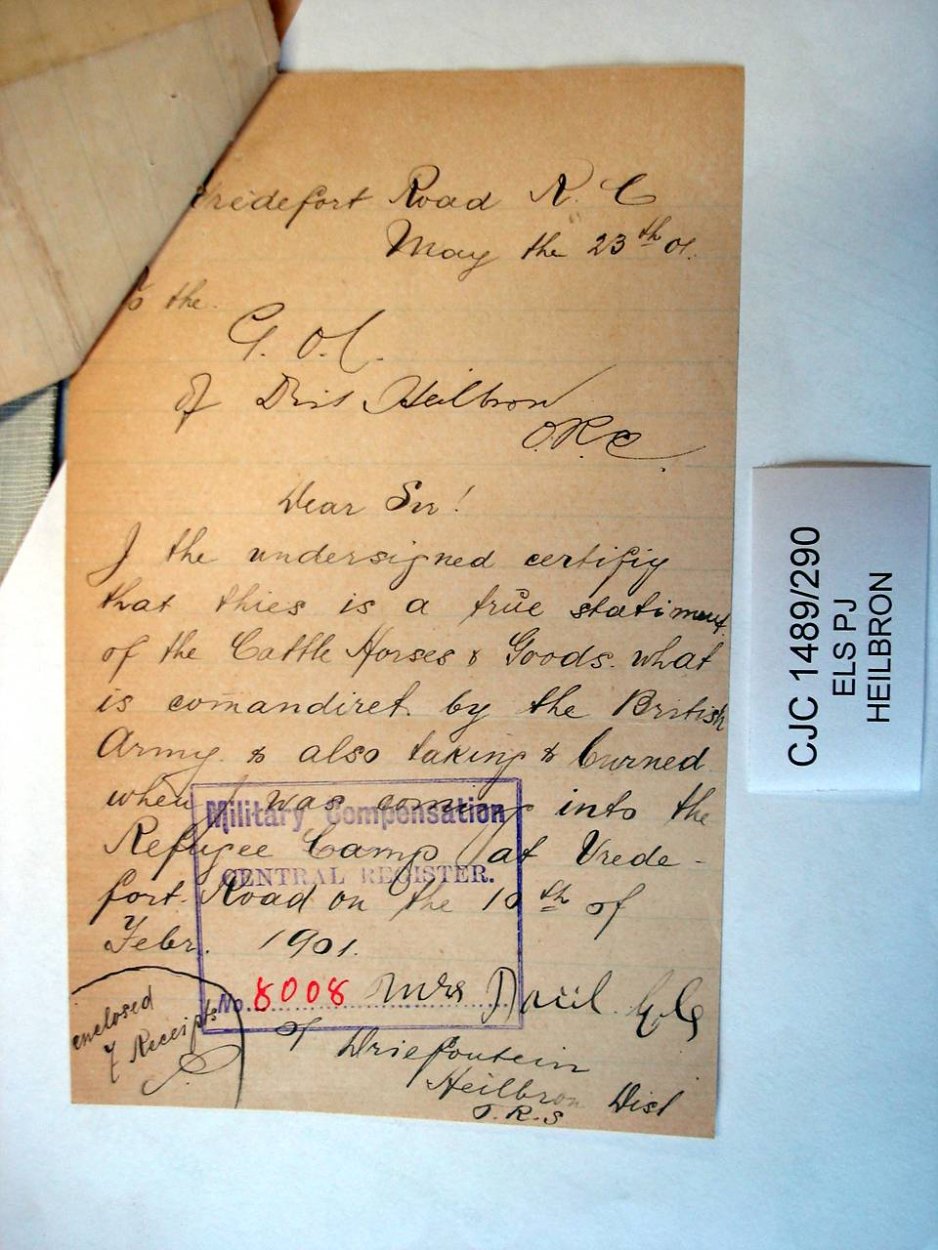 Vredefort Road R. C
May the 23th 01.
To the
G. O. C.
of Dist Heilbron
O. R. C.
Dear Sir!
I the undersigned certifiy
that thies is a true statiment
of the Cattle Horses & Goods. what
is comandiret. by the British
Army. & also taking & burned
when I was coming into the
Refugee Camp at Vrede-
fort. Road on the 10th of
Febr. 1901.
Mrs Paul Els
of Driefontein
Heilbron Dist
enclosed
7 Receipts
Military Compensation
CENTRAL REGISTER.
No. 8008
CJC 1489/290
ELS PJ
HEILBRON